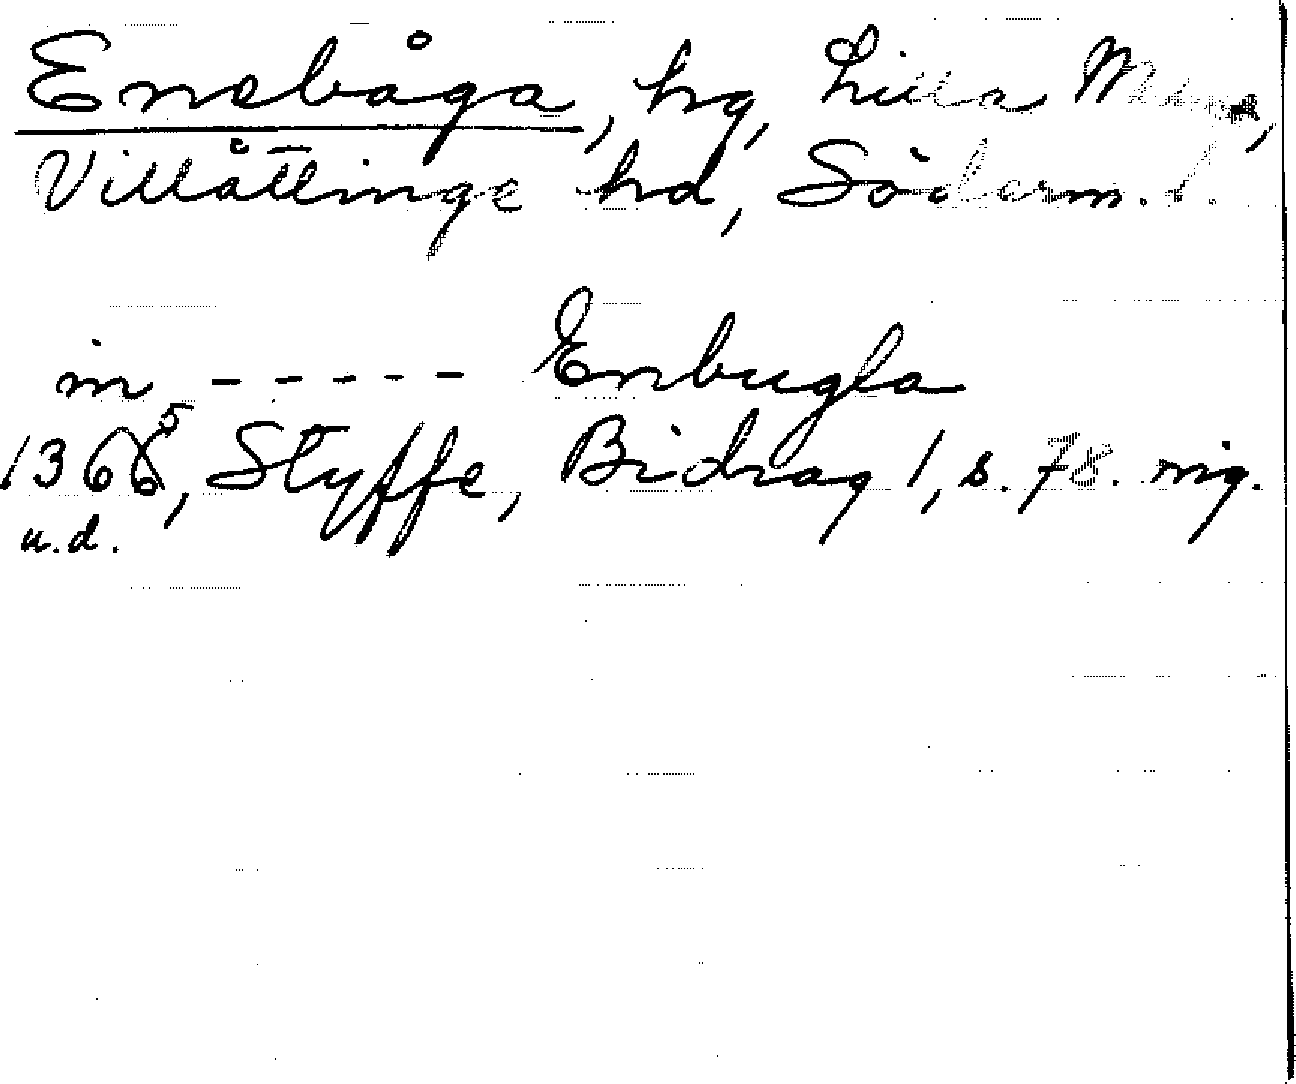 Enebåga, hg, Lilla Malma,
Villåttinge hd, Söderm. l.
in - - - - - Enbugla
1366⁵, Styffe, Bidrag 1, s. 78. nig.
u.d.